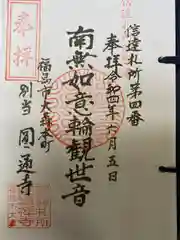 信達札所第四番
奉拝令和四年六月五日
南無如意輪観世音
福島市大森本町
別当 圓通寺
奉拝